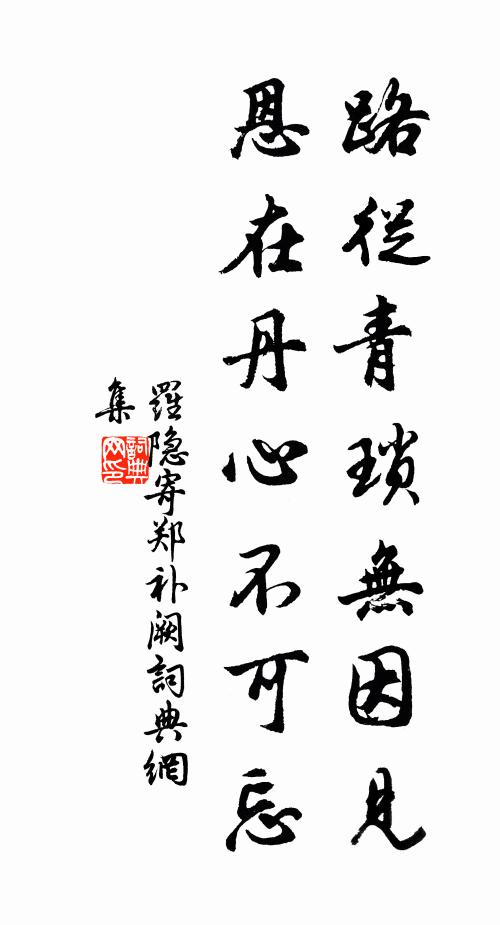 路從青瑣無因見
恩在丹心不可忘
羅隐寄郑补阙詞典網
集
詞典
网印